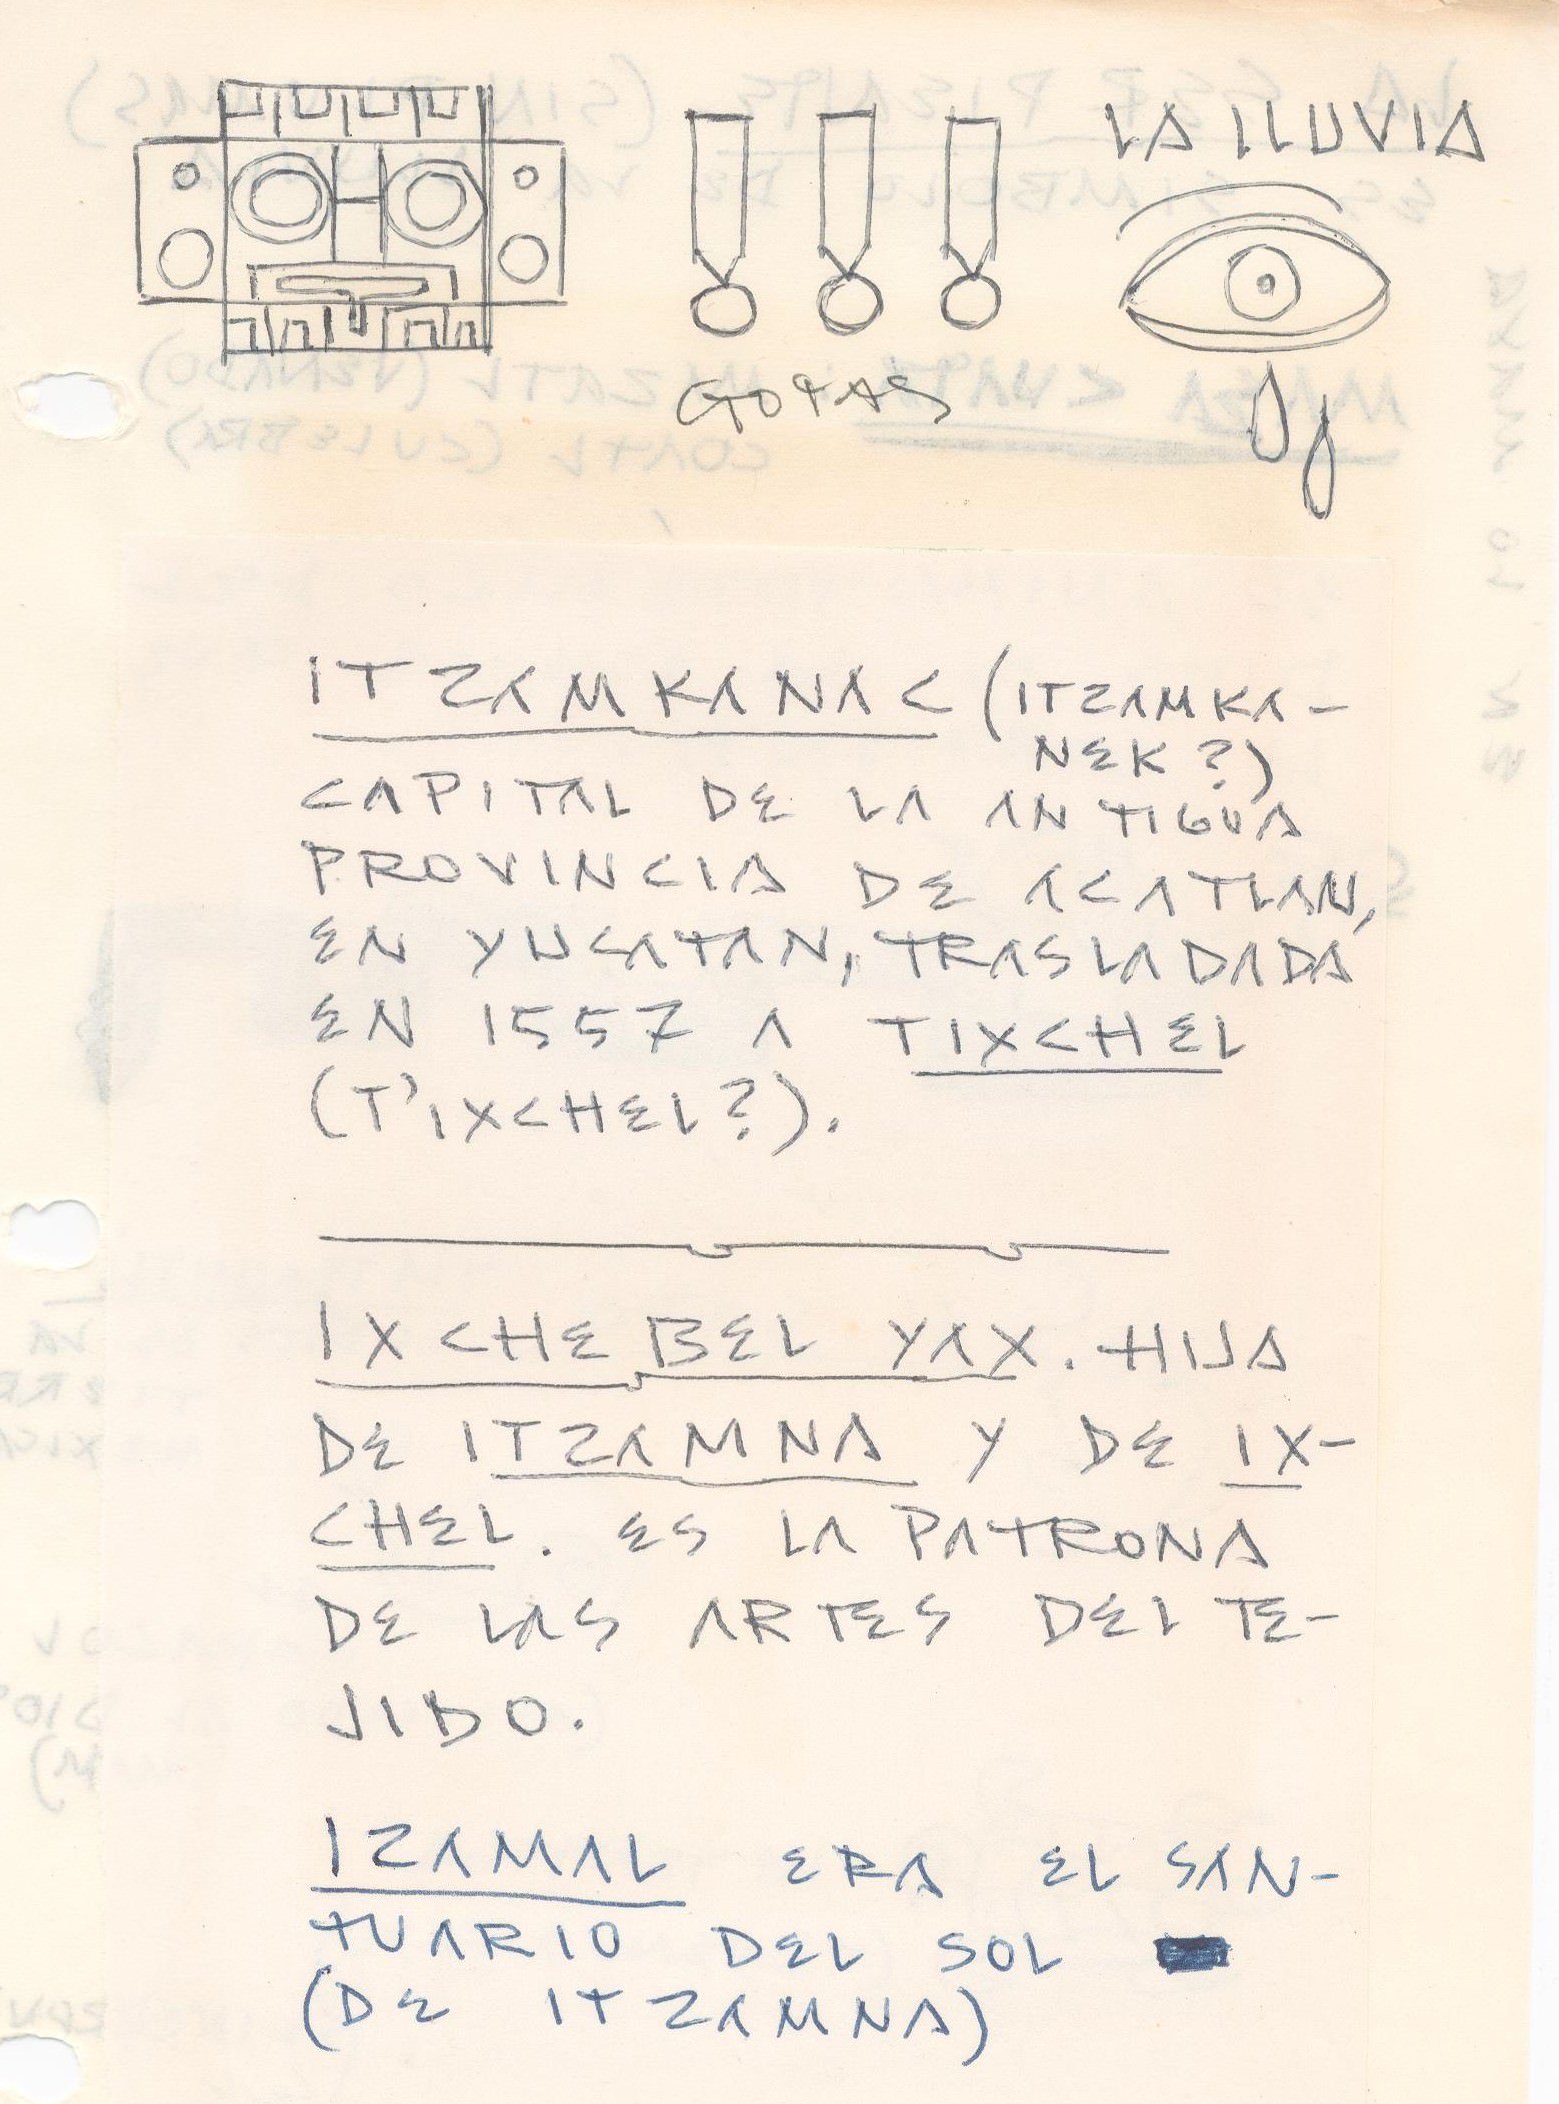 LA LLUVIA
GOTAS
ITZAMKANAC (ITZAMKA-
NEK?)
CAPITAL DE LA ANTIGUA
PROVINCIA DE ACATLAN,
EN YUCATAN, TRASLADADA
EN 1557 A TIXCHEL
(T'IXCHEL?).
IXCHEBEL YAX. HIJA
DE ITZAMNA Y DE IX-
CHEL. ES LA PATRONA
DE LAS ARTES DEL TE-
JIDO.
IZAMAL ERA EL SAN-
TUARIO DEL SOL
(DE ITZAMNA)